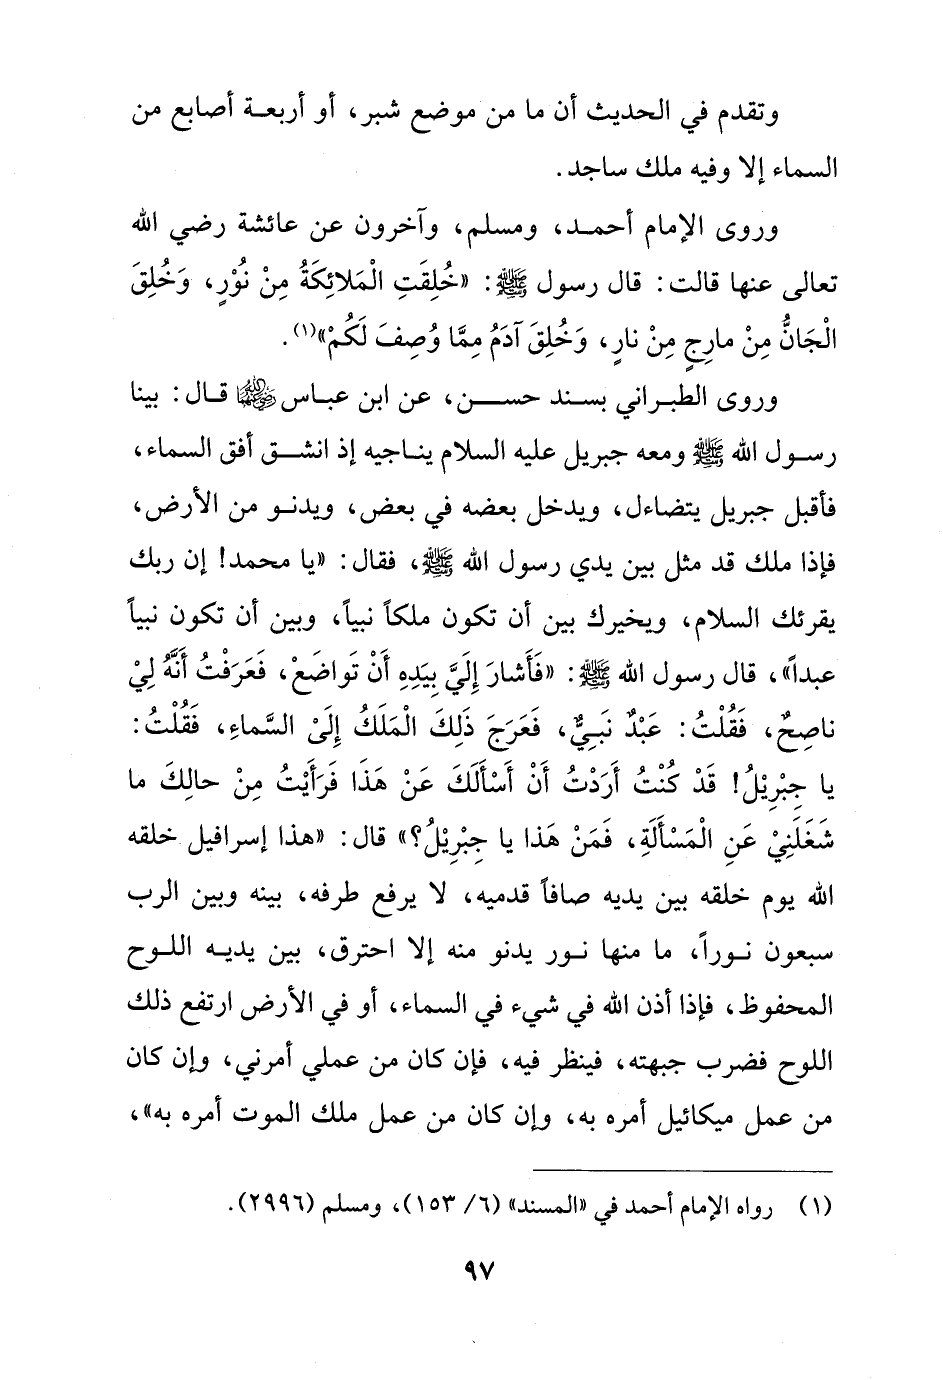 وتقدم في الحديث أن ما من موضع شبر، أو أربعـة أصابع من
السماء إلا وفيه ملك ساجد.
وروى الإمام أحمـد، ومسلم، وآخرون عن عائشة رضي الله
تعالى عنها قالت: قال رسول ﷺ: «خُلِقَتِ الْمَلائِكَةُ مِنْ نُوْرٍ، وَخُلِقَ
الْجَانُّ مِنْ مارِجٍ مِنْ نارٍ، وَخُلِقَ آدَمُ مِمَّا وُصِفَ لَكُمْ»(١).
وروى الطبـراني بسـند حسـن، عن ابن عبـاس رضي الله عنهما قـال: بينا
رسـول الله ﷺ ومعه جبريل عليه السلام ينـاجيه إذ انشـق أفق السماء،
فأقبل جبريل يتضاءل، ويدخل بعضه في بعض، ويدنـو من الأرض،
فإذا ملك قد مثل بين يدي رسول الله ﷺ، فقال: «يا محمد! إن ربك
يقرئك السلام، ويخيرك بين أن تكون ملكاً نبياً، وبين أن تكون نبياً
عبداً»، قال رسول الله ﷺ: «فَأَشارَ إِلَيَّ بِيَدِهِ أَنْ تَواضَعْ، فَعَرَفْتُ أَنَّهُ لِيْ
ناصِحٌ، فَقُلْتُ: عَبْدٌ نَبـِيٌّ، فَعَرَجَ ذَلِكَ الْمَلَكُ إِلَىْ السَّماءِ، فَقُلْتُ:
يا جِبْرِيْلُ! قَدْ كُنْتُ أَرَدْتُ أَنْ أَسْأَلَكَ عَنْ هَذَا فَرَأَيْتُ مِنْ حالِكَ ما
شَغَلَنِيْ عَنِ الْمَسْأَلَةِ، فَمَنْ هَذا يا جِبْرِيْلُ؟» قال: «هذا إسرافيل خلقه
الله يوم خلقه بين يديه صافاً قدميه، لا يرفع طرفه، بينه وبين الرب
سبعون نـوراً، ما منها نـور يدنو منه إلا احترق، بين يديـه اللـوح
المحفوظ، فإذا أذن الله في شيء في السماء، أو في الأرض ارتفع ذلك
اللوح فضرب جبهته، فينظر فيه، فإن كان من عملي أمرني، وإن كان
من عمل ميكائيل أمره به، وإن كان من عمل ملك الموت أمره به»،
(١) رواه الإمام أحمد في «المسند» (٦/ ١٥٣)، ومسلم (٢٩٩٦).
٩٧